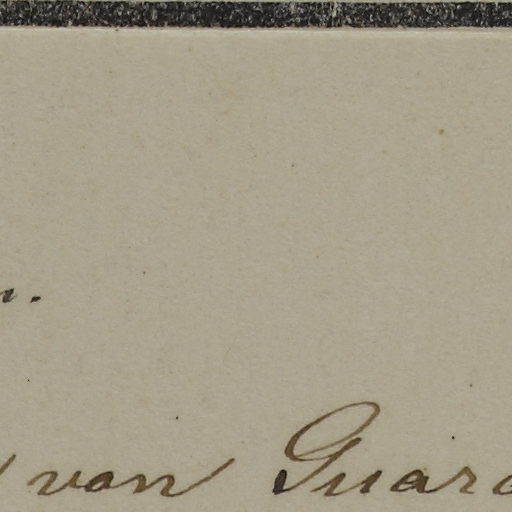 van Guard